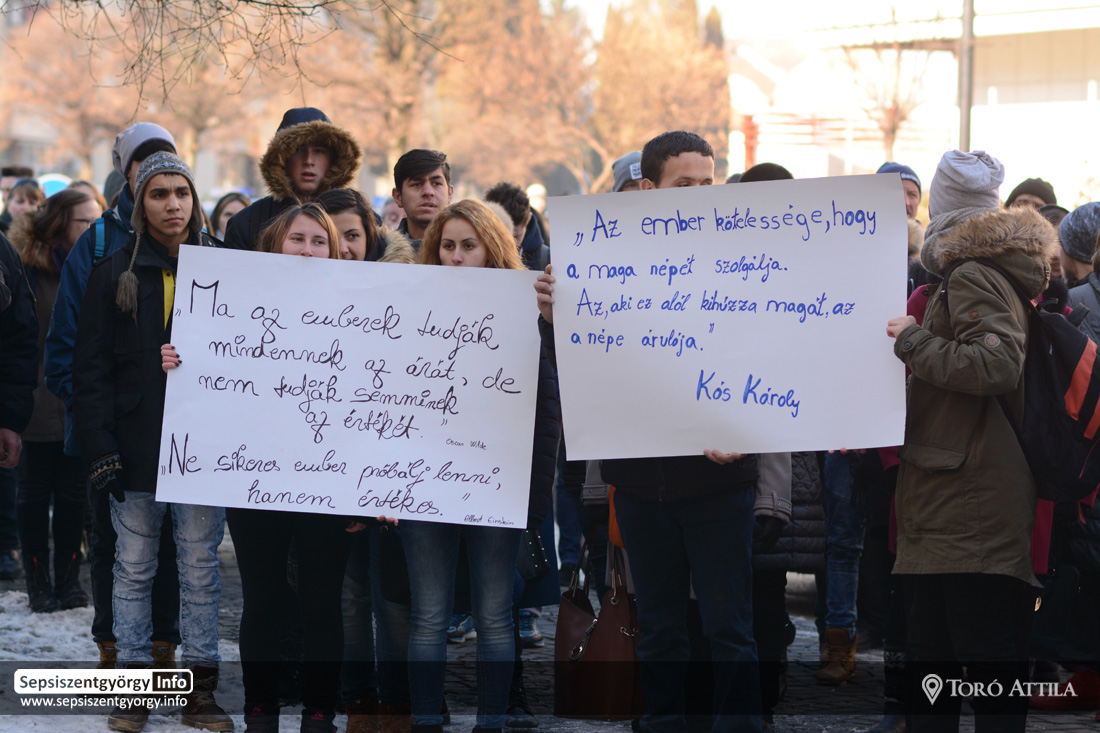 „Ma az emberek tudják
mindennek az árát, de
nem tudják semminek
az értékét."
Oscar Wilde
„Ne sikeres ember próbálj lenni,
hanem értékes."
Albert Einstein
„Az ember kötelessége, hogy
a maga népét szolgálja.
Az, aki ez alól kihúzza magát, az
a népe árulója."
Kós Károly
Sepsiszentgyörgy Info
www.sepsiszentgyorgy.info
TORÓ ATTILA